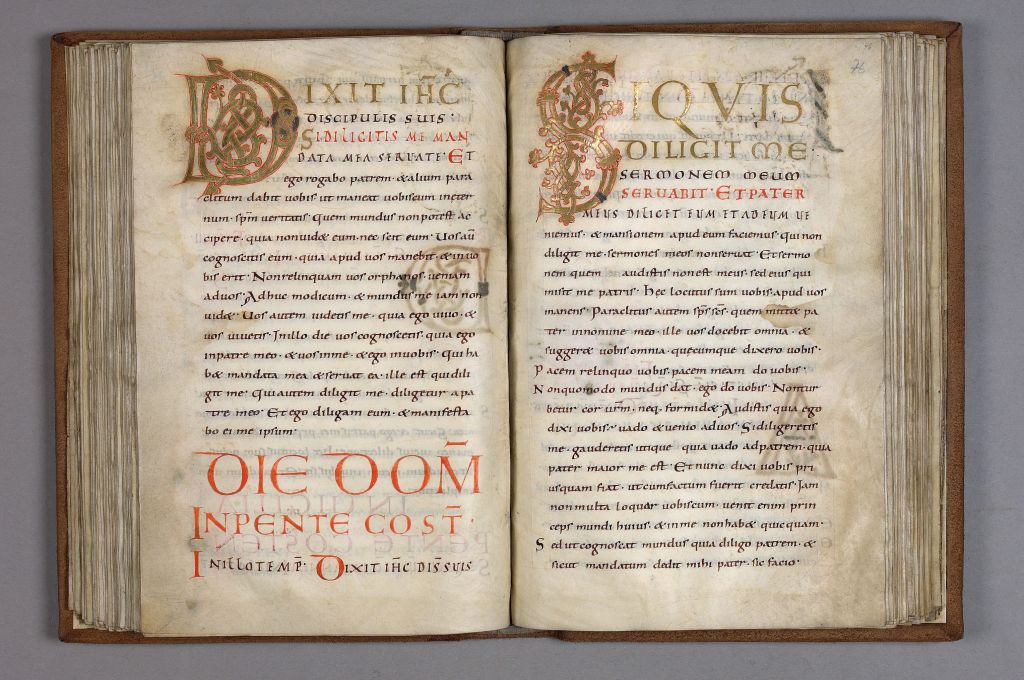 DIXIT IHC
DISCIPULIS SUIS ·
SI DILIGITIS ME MAN
DATA MEA SERUATE · ET
ego rogabo patrem · & alium para
clitum dabit vobis · ut maneat vobiscum in&er
num · spm veritatis · Quem mundus non potest ac
cipere · quia non vid& eum · nec scit eum · Uos aū
cognoscetis eum · quia apud vos manebit · & in vo
bis erit · Non relinquam vos orphanos · veniam
ad vos · Adhuc modicum · & mundus me iam non
vid& · Uos autem videtis me · quia ego vivo · &
vos vivetis · In illo die vos cognoscetis · quia ego
in patre meo · & vos in me · & ego in vobis · Qui ha
b& mandata mea & servat ea · ille est qui dili
git me · Qui autem diligit me · diligetur a pa
tre meo · Et ego diligam eum · & manifesta
bo ei me ipsum ·
DIE DOM̄
IN PENTECOST̄ ·
IN ILLO TEMP̄ · DIXIT IHC DIS SUIS
76
SI QVIS
DILIGIT ME
SERMONEM MEUM
SERUABIT · ET PATER
MEUS DILIGET EUM ET AD EUM UE
niemus · & mansionem apud eum faciemus · qui non
diligit me · sermones meos non servat · Et sermo
nem quem audistis non est meus · sed eius qui
misit me patris · Hęc locutus sum vobis · apud vos
manens · Paraclitus autem sps scs · quem mitt& pa
ter in nomine meo · ille vos docebit omnia · &
sugger& vobis omnia · quęcumque dixero vobis ·
Pacem relinquo vobis · pacem meam do vobis ·
Non quomodo mundus dat · ego do vobis · Non tur
betur cor urm · neq · formid& · Audistis quia ego
dixi vobis · vado & venio ad vos · Si diligeretis
me · gauderetis utique · quia vado ad patrem · quia
pater maior me est · Et nunc dixi vobis pri
usquam fiat · ut cum factum fuerit credatis · Iam
non multa loquar vobiscum · venit enim prin
ceps mundi huius · & in me non hab& quicquam ·
Sed ut cognoscat mundus quia diligo patrem · &
sicut mandatum dedit mihi pater · sic facio ·